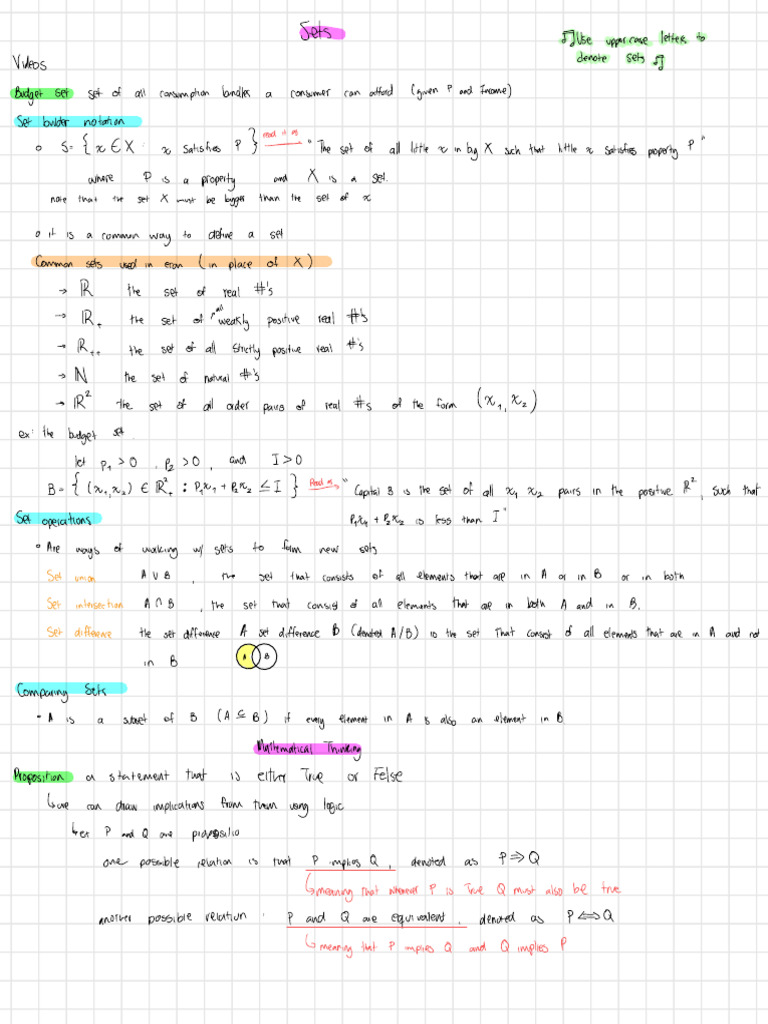 Sets
♫ Use uppercase letters to
denote sets ♫
Videos
Budget set set of all consumption bundles a consumer can afford (given P and Income)
Set builder notation
o S = { x ∈ X : x satisfies P } read it as "The set of all little x in big X such that little x satisfies property P"
where P is a property and X is a set.
note that the set X must be bigger than the set of x
o it is a common way to define a set
Common sets used in econ (in place of X)
→ ℝ the set of real #'s
→ ℝ₊ the set of all weakly positive real #'s
→ ℝ₊₊ the set of all strictly positive real #'s
→ ℕ the set of natural #'s
→ ℝ² the set of all order pairs of real #s of the form (x₁, x₂)
ex: the budget set
let p₁ > 0, p₂ > 0, and I > 0
B = { (x₁, x₂) ∈ ℝ²₊ : P₁x₁ + P₂x₂ ≤ I } Read as → "Capital B is the set of all x₁ x₂ pairs in the positive ℝ², such that
P₁x₁ + P₂x₂ is less than I"
Set operations
• Are ways of working w/ sets to form new sets
Set union A ∪ B, the set that consists of all elements that are in A or in B or in both
Set intersection A ∩ B, the set that consist of all elements that are in both A and in B.
Set difference the set difference A set difference B (denoted A/B) is the set that consist of all elements that are in A and not
in B A B
Comparing Sets
- A is a subset of B (A ⊆ B) if every element in A is also an element in B
Mathematical Thinking
Proposition a statement that is either True or False
↳ we can draw implications from them using logic
↳ ex P and Q are propositio
one possible relation is that P implies Q, denoted as P ⇒ Q
↳ meaning that whenever P is True Q must also be true
another possible relation: P and Q are equivalent, denoted as P ⟺ Q
↳ meaning that P implies Q and Q implies P